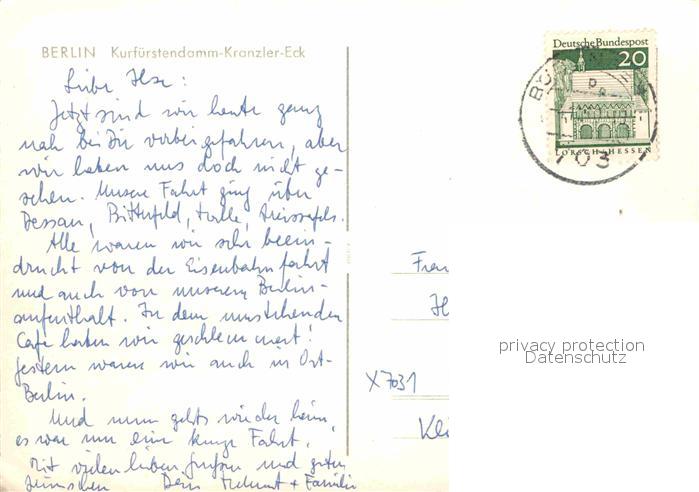 BERLIN Kurfürstendamm-Kranzler-Eck
Deutsche Bundespost
20
LORSCH/HESSEN
703
Liebe Ilse:
Jetzt sind wir heute ganz
nah bei Dir vorbeigefahren, aber
wir haben uns doch nicht ge-
sehen. Unsere Fahrt ging über
Dessau, Bitterfeld, Halle, Weissenfels.
Alle waren wir sehr beein-
druckt von der Eisenbahnfahrt
und auch von unserem Berlin-
aufenthalt. In dem umstehenden
Café haben wir geschlemmert!
Gestern waren wir auch in Ost-
Berlin.
Und nun gehts wieder heim,
es war nur eine kurze Fahrt.
Mit vielen lieben Grüßen und guten
Wünschen Dein Helmut + Familie
Frau
X 7031
privacy protection
Datenschutz